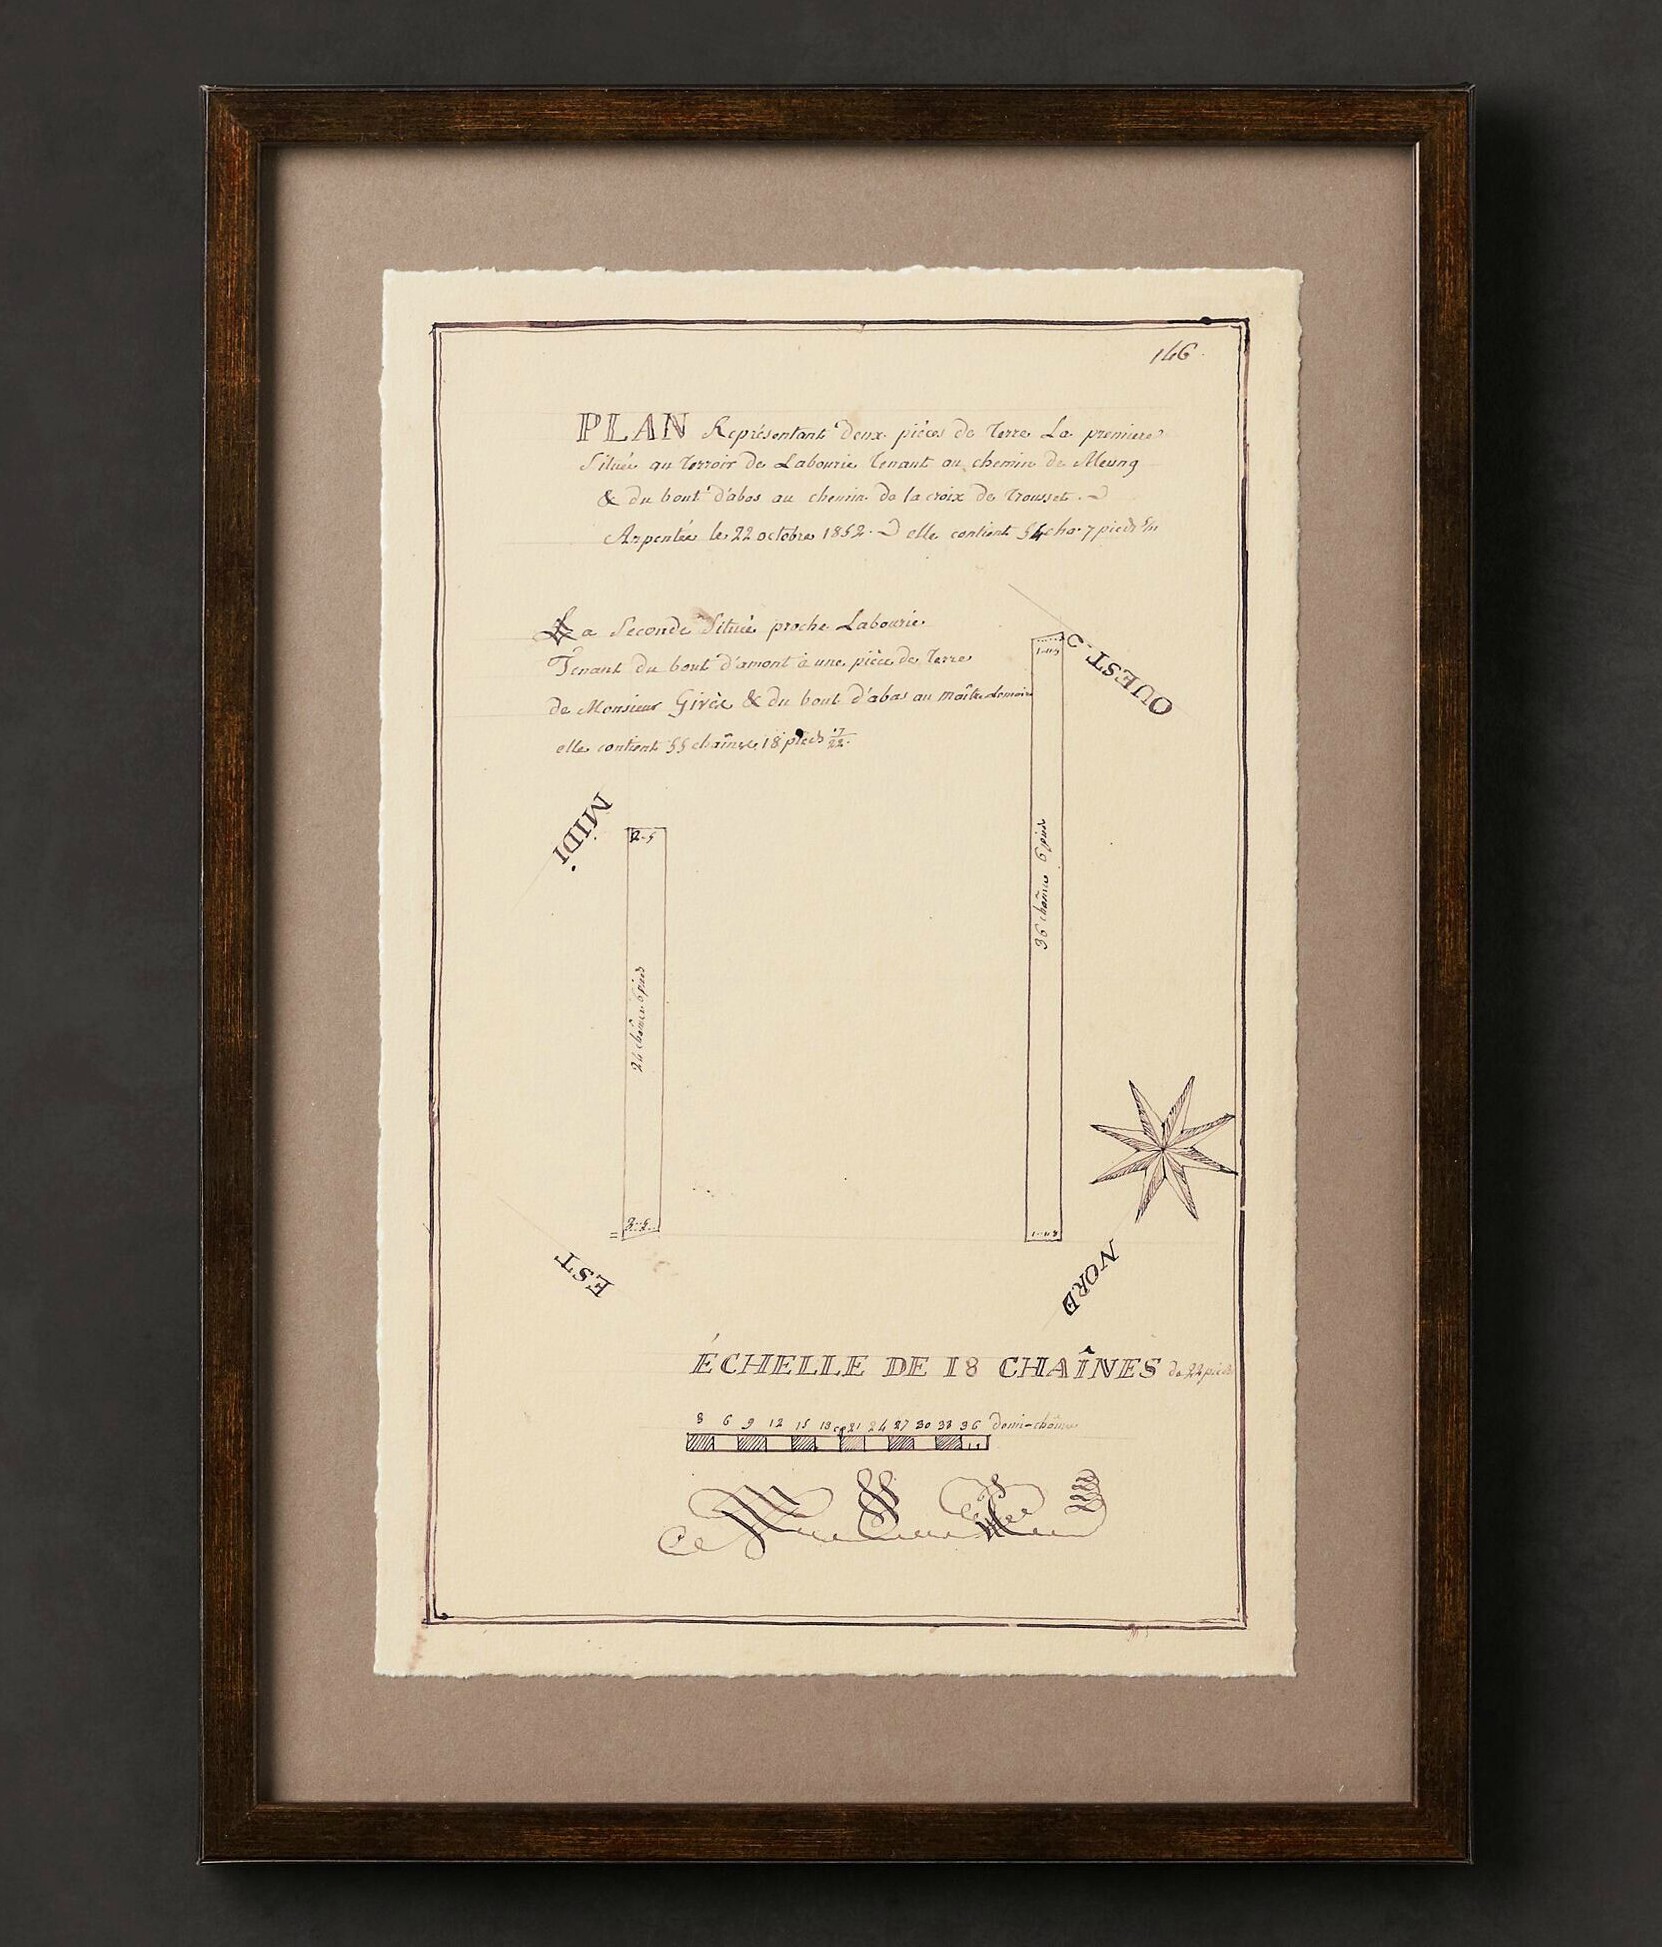 146.
PLAN Représentant deux pièces de Terre La premiere
Située au Terroir de Labourie Tenant au chemin de Meung
& du bout d'abas au chemin de la croix de Trousset.
Arpentée le 22 octobre 1852. elle contient 54 cho 7 pieds
La Seconde Située proche Labourie.
Tenant du bout d'amont à une pièce de Terre
de Monsieur Givès & du bout d'abas au maître
elle contient 55 chaînes 18 pieds 17/22.
OUEST
MIDI.
2-5
24 chaînes 6 pieds
2-5
36 chaînes 6 pieds
EST
NORD
ÉCHELLE DE 18 CHAÎNES de 22 pieds
3 6 9 12 15 18 21 24 27 30 33 36 demi-chaînes